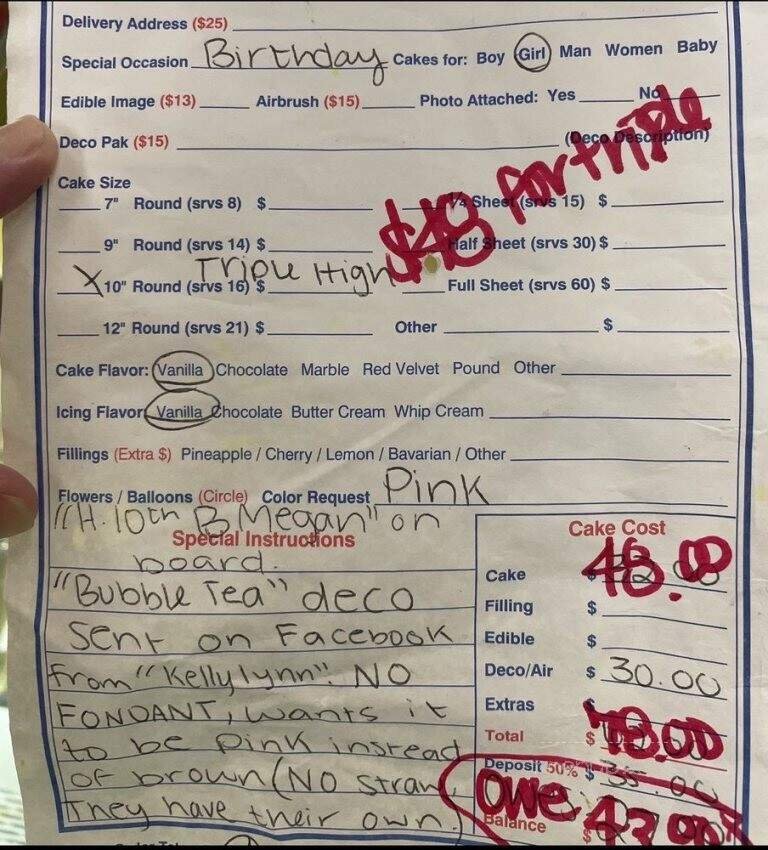 Delivery Address ($25)
Special Occasion Birthday Cakes for: Boy Girl Man Women Baby
Edible Image ($13) Airbrush ($15) Photo Attached: Yes No
Deco Pak ($15) (Deco Description)
$48 for triple
Cake Size
7" Round (srvs 8) $ 1/4 Sheet (srvs 15) $
9" Round (srvs 14) $ Half Sheet (srvs 30) $
Triple High
X 10" Round (srvs 16) $ Full Sheet (srvs 60) $
12" Round (srvs 21) $ Other $
Cake Flavor: Vanilla Chocolate Marble Red Velvet Pound Other
Icing Flavor Vanilla Chocolate Butter Cream Whip Cream
Fillings (Extra $) Pineapple / Cherry / Lemon / Bavarian / Other
Flowers / Balloons (Circle) Color Request Pink
"H. 10th B Megan" on
Special Instructions
board.
"Bubble Tea" deco
sent on Facebook
from "Kellylynn". NO
FONDANT, wants it
to be pink instead
of brown (NO straw,
They have their own.)
Cake Cost
Cake $ 48.00
Filling $
Edible $
Deco/Air $ 30.00
Extras $
Total $ 78.00
Deposit 50% $ 35.00
owe
Balance $ 43.00